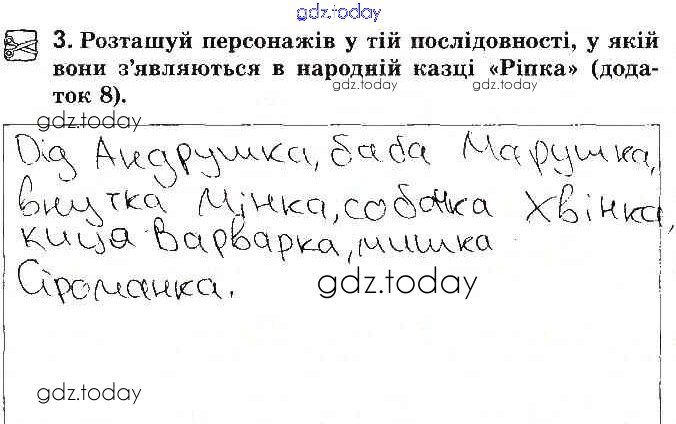 gdz.today
3. Розташуй персонажів у тій послідовності, у якій
вони з'являються в народній казці «Ріпка» (дода-
gdz.today gdz.today
ток 8).
gdz.today
Дід Андрушка, баба Марушка,
внутка Мінка, собачка Хвінка,
киця Варварка, мишка
Сіроманка.
gdz.today
gdz.today